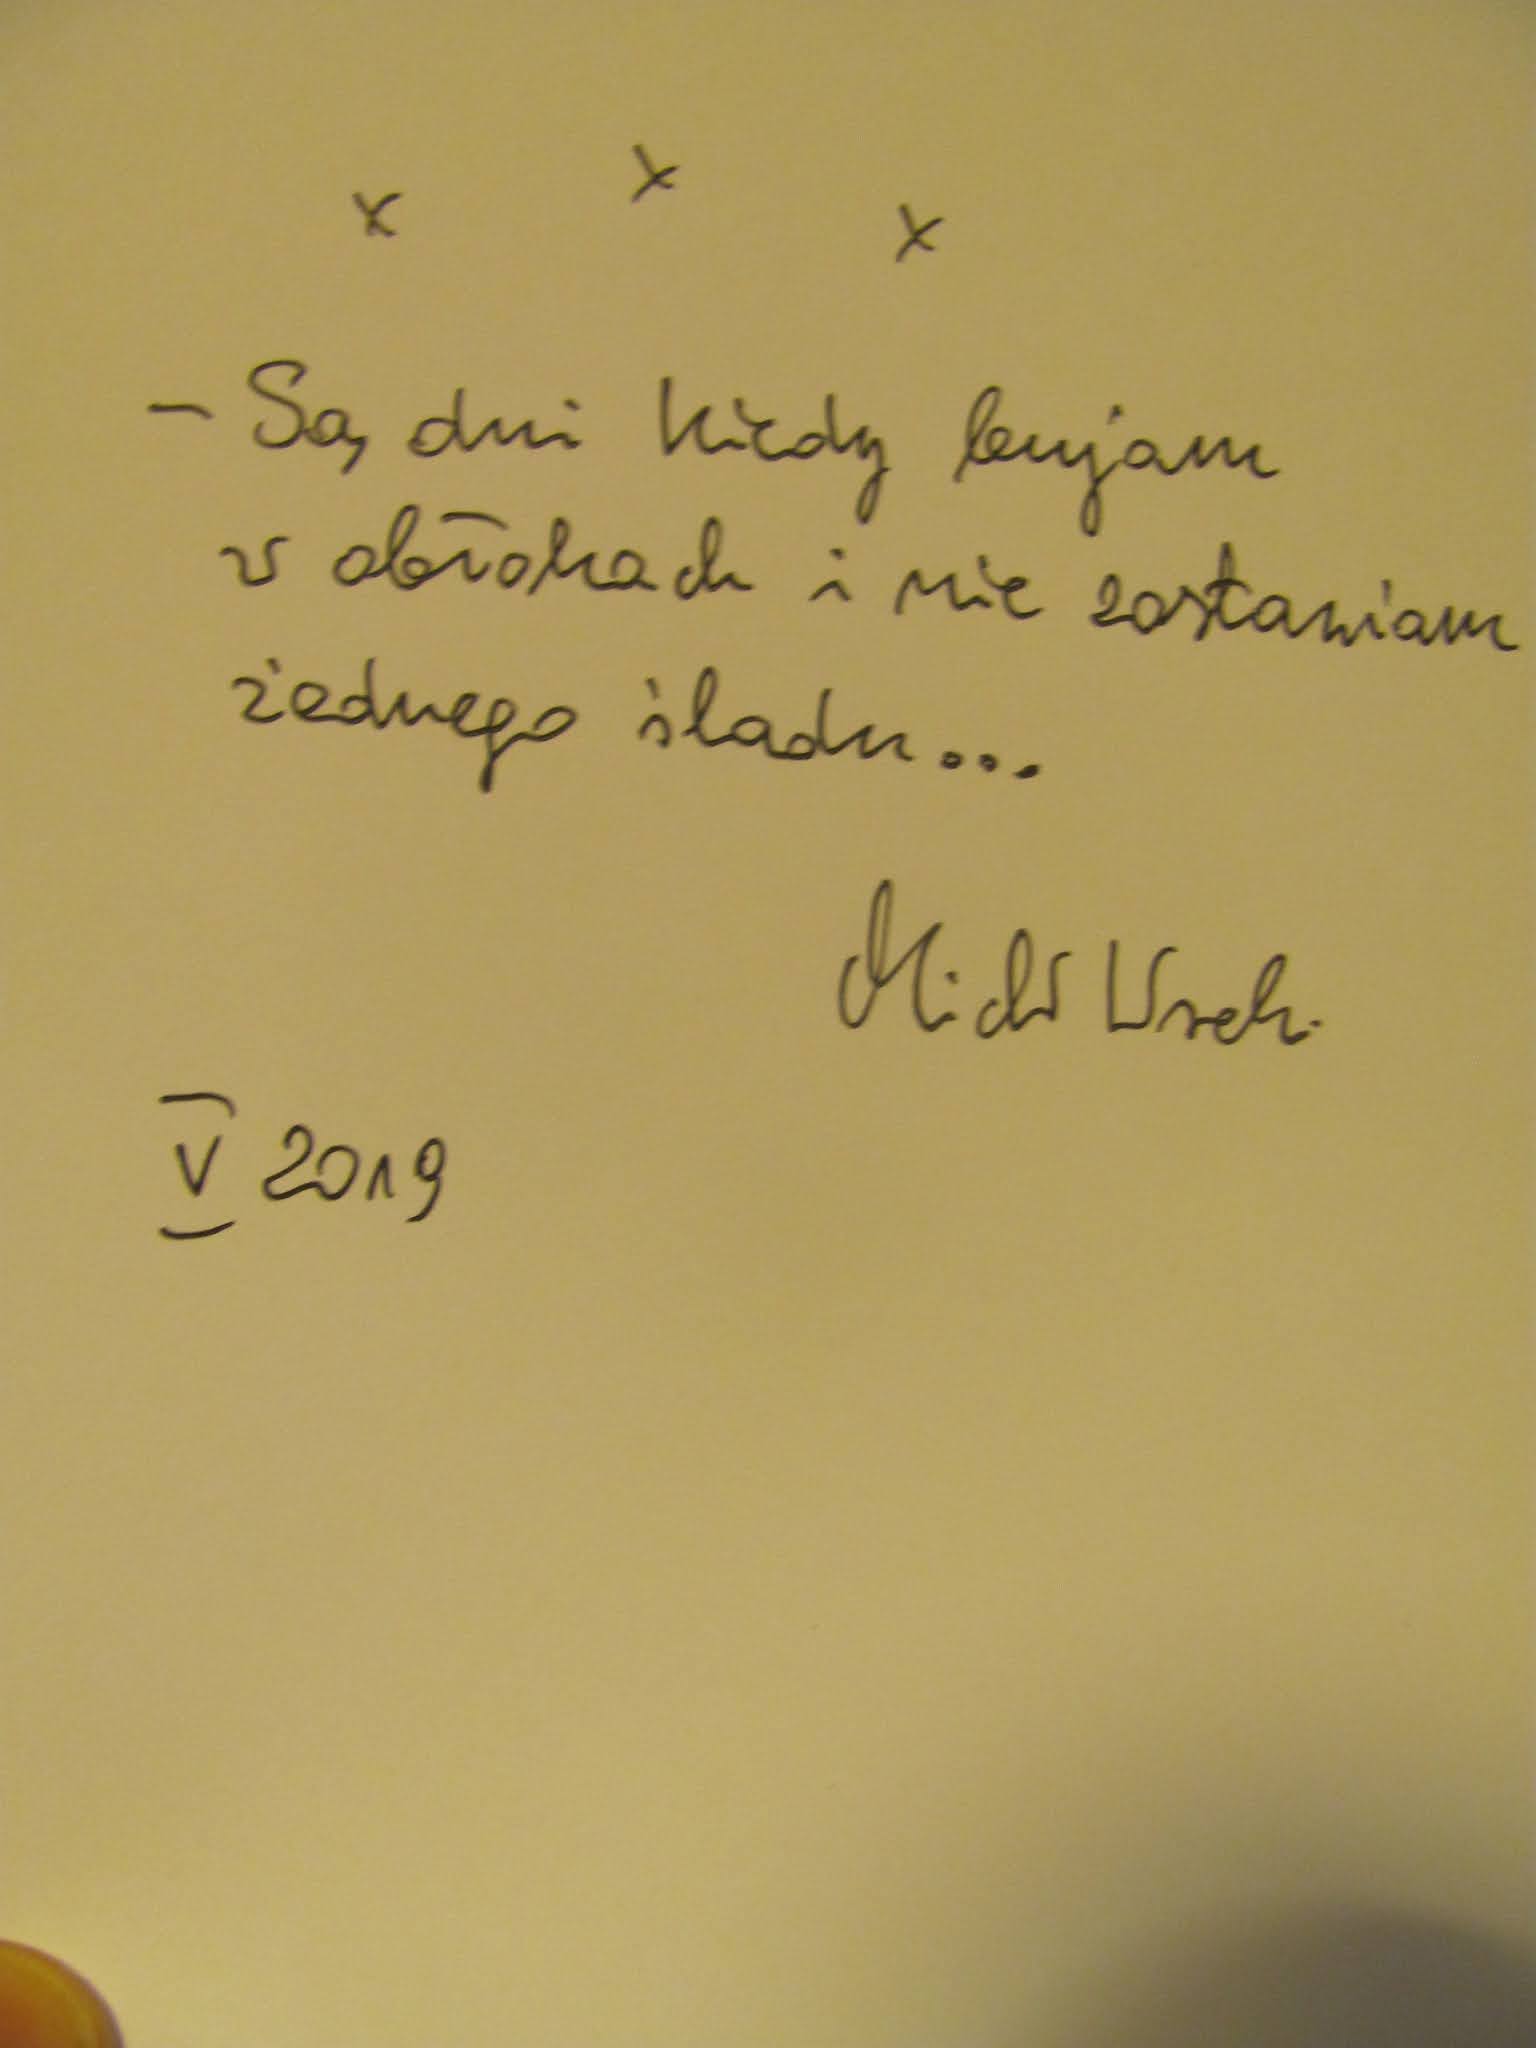 x x x
– Są dni kiedy bujam
w obłokach i nie zostawiam
żadnego śladu...
V 2019